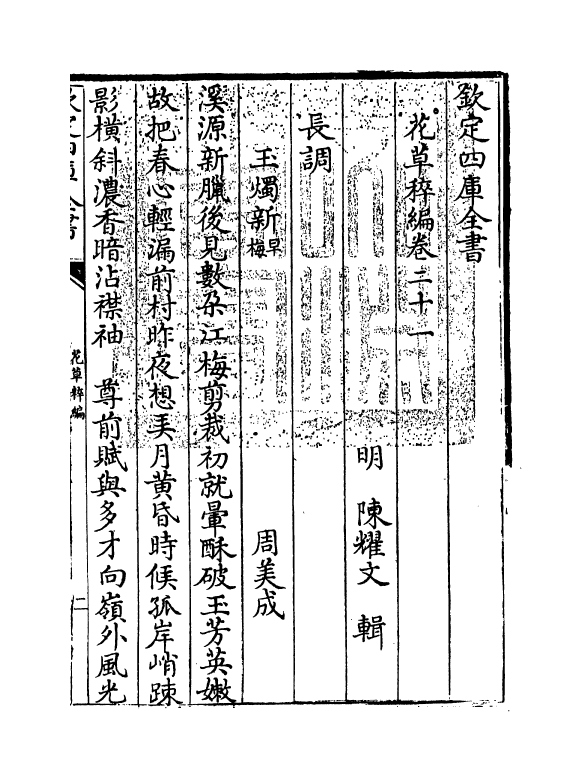 欽定四庫全書
花草稡編卷二十一
明 陳耀文 輯
長調
玉燭新早梅 周美成
溪源新臘後見數朶江梅剪裁初就暈酥破玉芳英嫩
故把春心輕漏前村昨夜想弄月黄昏時候孤岸峭踈
影横斜濃香暗沾襟袖 尊前賦與多才向嶺外風光
欽定四庫全書
花草稡編